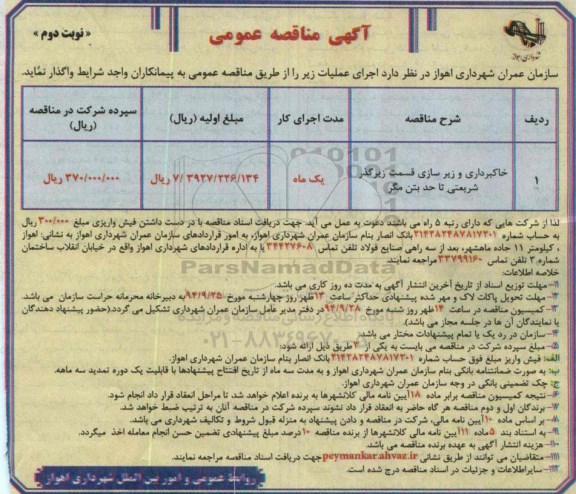 آگهی مناقصه عمومی
« نوبت دوم »
سازمان عمران شهرداری اهواز در نظر دارد اجرای عملیات زیر را از طریق مناقصه عمومی به پیمانکاران واجد شرایط واگذار نماید.
ردیف شرح مناقصه مدت اجرای کار مبلغ اولیه (ریال) سپرده شرکت در مناقصه (ریال)
۱ خاکبرداری و زیر سازی قسمت زیرگذر شریعتی تا حد بتن مگر یک ماه ۷/۳۹۲۷/۲۲۶/۱۳۴ ریال ۳۷۰/۰۰۰/۰۰۰ ریال
لذا از شرکت هایی که دارای رتبه ۵ راه می باشند دعوت به عمل می آید جهت دریافت اسناد مناقصه با در دست داشتن فیش واریزی مبلغ ۳۰۰/۰۰۰ ریال
به حساب شماره ۲۱۴۳۸۲۴۸۷۸۱۷۲۰۱ بانک انصار بنام سازمان عمران شهرداری اهواز، به امور قراردادهای سازمان عمران شهرداری اهواز به نشانی: اهواز
، کیلومتر ۱۱ جاده ماهشهر، بعد از سه راهی صنایع فولاد تلفن تماس ۳۴۴۳۷۶۰۸ یا به اداره قراردادهای شهرداری اهواز واقع در خیابان انقلاب ساختمان
شماره ۳ تلفن تماس ۳۳۷۹۹۱۶۰ مراجعه نمایند.
خلاصه اطلاعات:
۱- مهلت توزیع اسناد از تاریخ آخرین انتشار آگهی به مدت ده روز کاری می باشد.
۲- مهلت تحویل پاکات لاک و مهر شده پیشنهادی حداکثر ساعت ۱۳ ظهر روز چهارشنبه مورخ ۹۴/۹/۲۵ به دبیرخانه محرمانه حراست سازمان می باشد.
۳- کمیسیون مناقصه در ساعت ۱۴ ظهر روز شنبه مورخ ۹۴/۹/۲۸ در دفتر مدیر عامل سازمان عمران شهرداری تشکیل می گردد.(حضور پیشنهاد دهندگان
یا نمایندگان آن ها در جلسه مجاز می باشد).
۴- سازمان در رد یک یا تمام پیشنهادات مختار می باشد.
۵- مبلغ سپرده شرکت در مناقصه می بایست به یکی از ۳ طریق ذیل ارائه شود:
الف: فیش واریز مبلغ فوق حساب شماره ۲۱۴۳۸۲۴۸۷۸۱۷۲۰۱ بانک انصار بنام سازمان عمران شهرداری اهواز.
ب: به صورت ضمانتنامه بانکی بنام سازمان عمران شهرداری اهواز و به مدت سه ماه از تاریخ افتتاح پیشنهادها با قابلیت یک دوره تمدید سه ماهه.
ج: چک تضمینی بانکی در وجه سازمان عمران شهرداری اهواز.
۶- نتیجه کمیسیون مناقصه برابر ماده ۱۸ آیین نامه مالی کلانشهرها به برنده اعلام خواهد شد تا مراحل انعقاد قرار داد انجام شود.
۷- برندگان اول و دوم مناقصه هر گاه حاضر به انعقاد قرار داد نشوند سپرده شرکت در مناقصه آنان به ترتیب ضبط خواهد شد.
۸- بر اساس ماده ۱۰ آیین نامه مالی، شرکت در مناقصه و دادن پیشنهاد به منزله قبول شروط و تکالیف شهرداری می باشد.
۹- به استناد بند ۵ ماده ۱۱ آیین نامه مالی کلانشهرها از برنده مناقصه ۱۰ درصد مبلغ پیشنهادی تضمین حسن انجام معامله اخذ میگردد.
۱۰- هزینه انتشار آگهی به عهده برنده مناقصه می باشد.
۱۱- متقاضیان می توانند از طریق نشانی peymankar.ahvaz.ir جهت دریافت اسناد مناقصه مراجعه نمایند.
۱۲- سایراطلاعات و جزئیات در اسناد مناقصه درج شده است.
روابط عمومی و امور بین الملل شهرداری اهواز
ParsNamadData